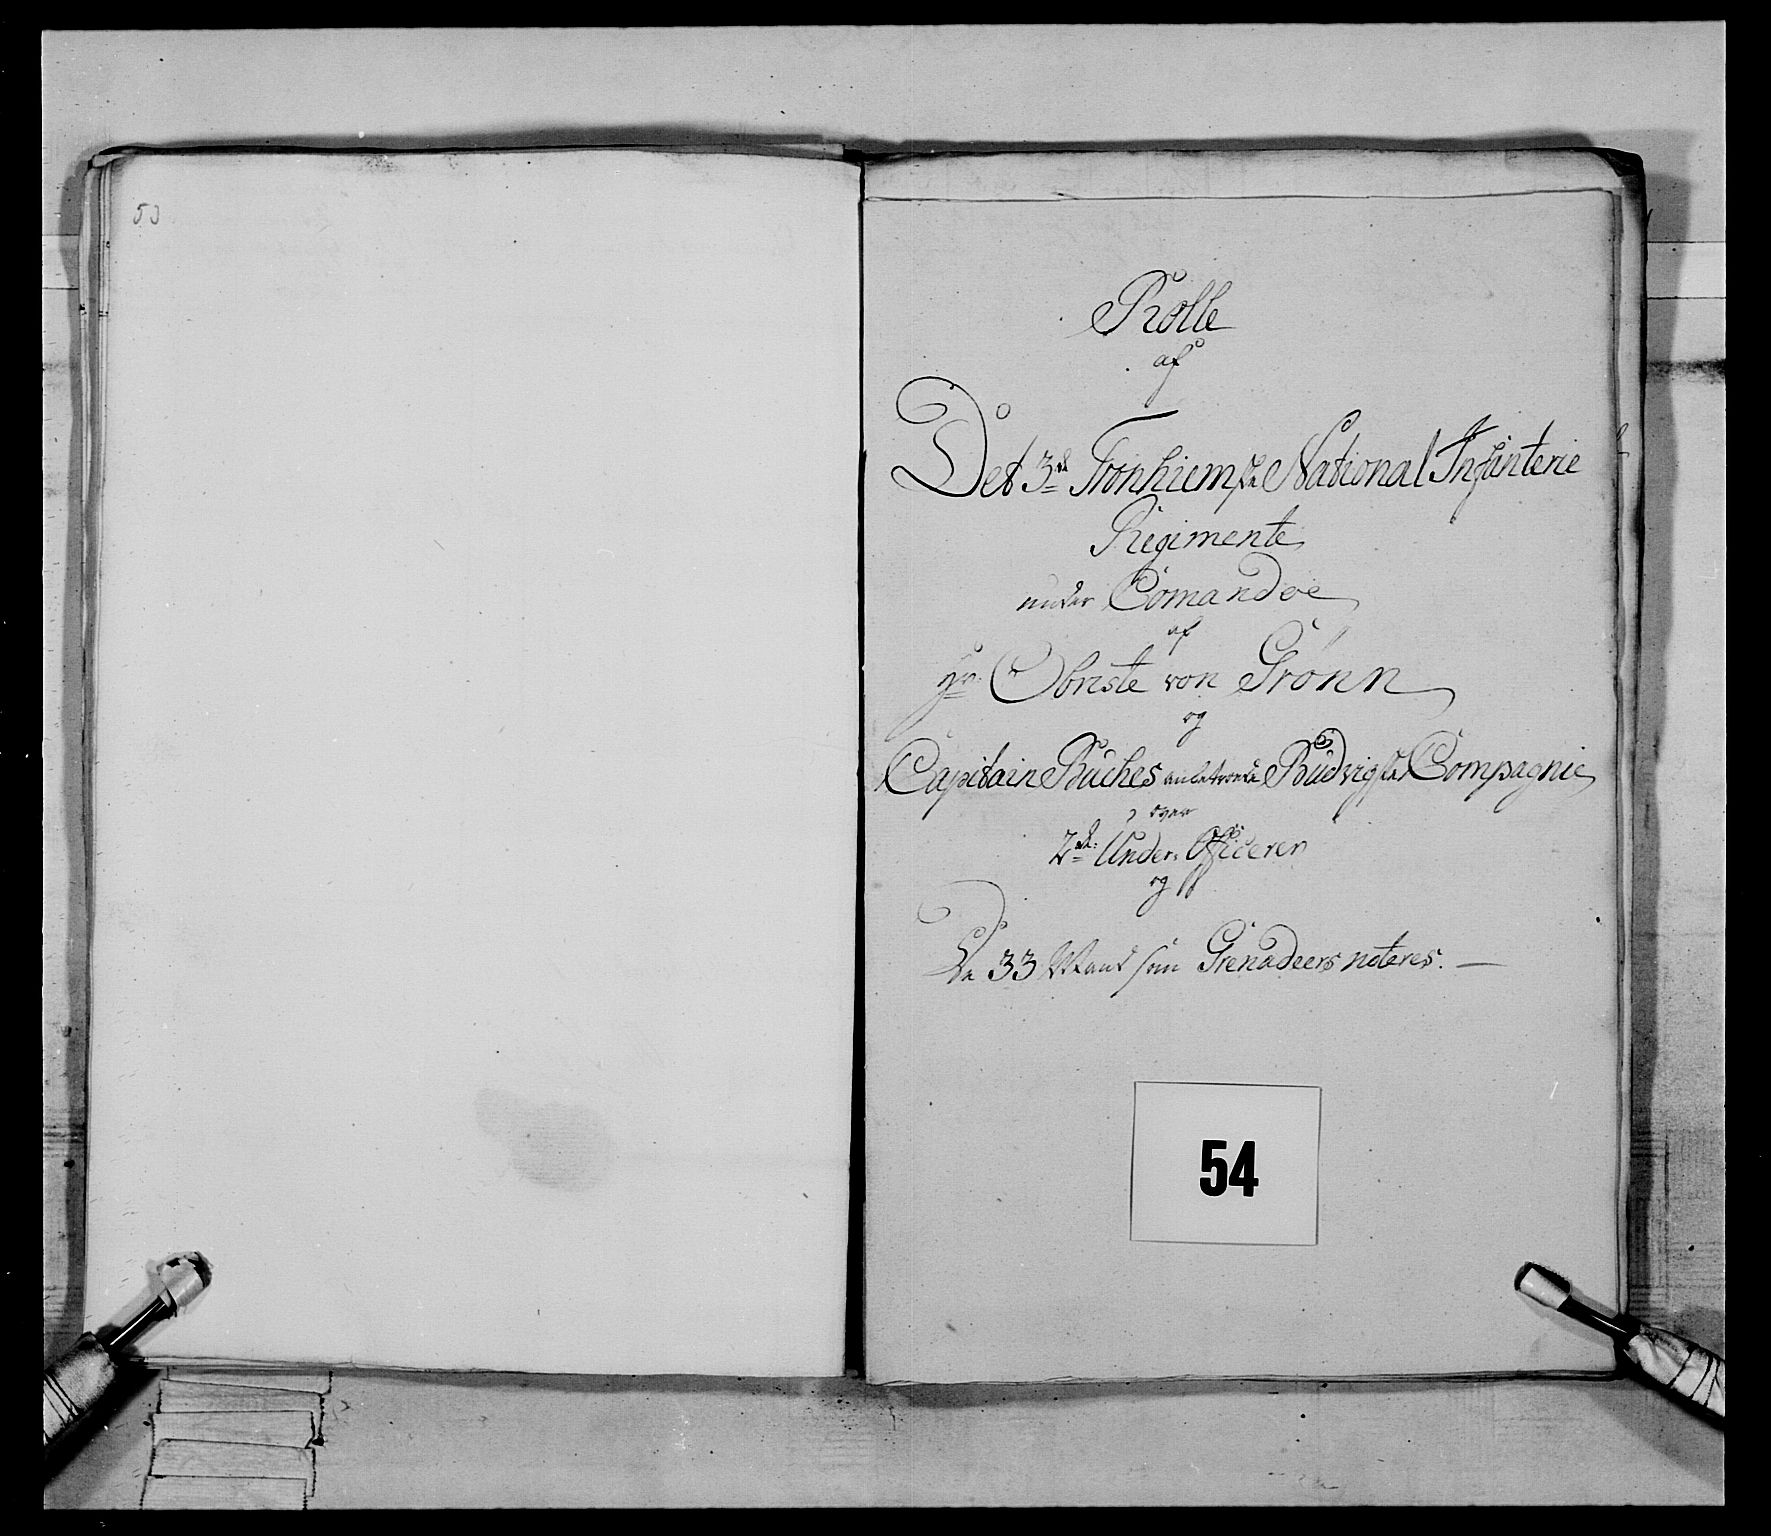 53
Rolle
af
Det 3de Tronhiemske National Infanterie
Regimente
under Comandoe
af
Hr: Obriste von Grønn
og
Capitain Büches anbetroede Büdvigske Compagnie
over
2de: Under Officerer
og
De 33 Mand som Grenadeers noteres. —
54